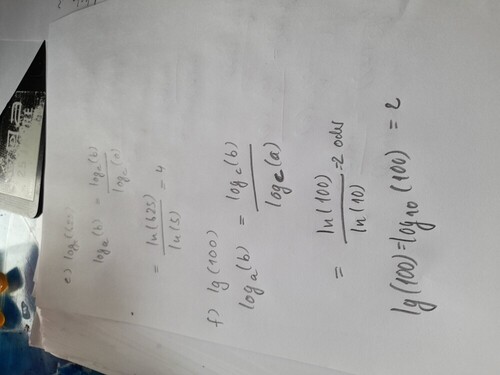 e) log₅(625)
logₐ(b) = log_c(b) / log_c(a)
= ln(625) / ln(5) = 4
f) lg(100)
logₐ(b) = log_c(b) / log_c(a)
= ln(100) / ln(10) = 2 oder
lg(100) = log₁₀(100) = 2